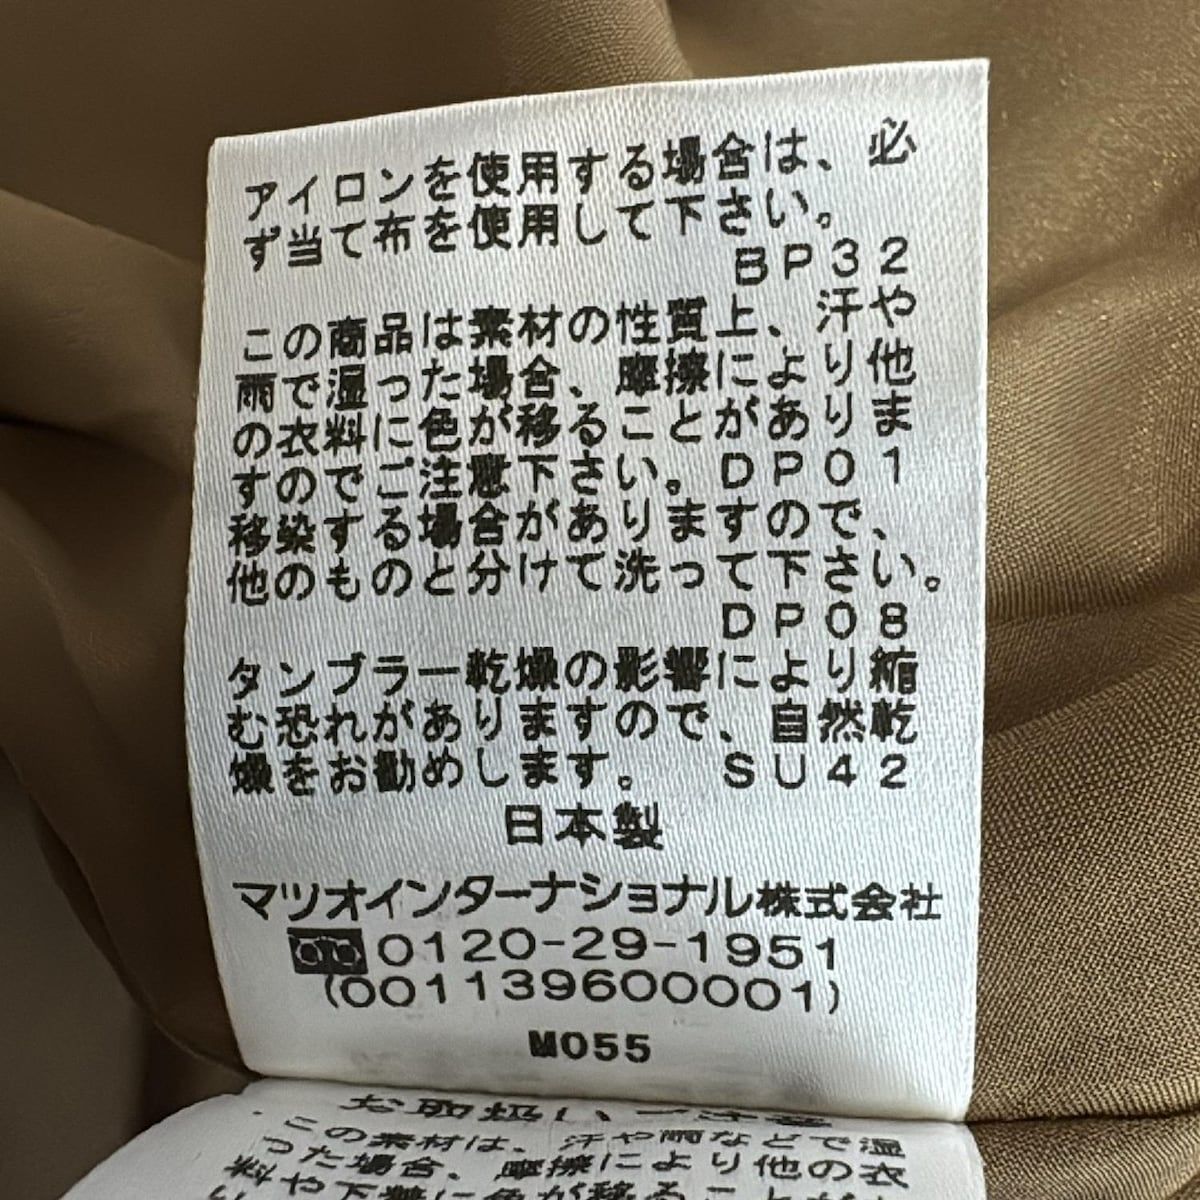 アイロンを使用する場合は、必
ず当て布を使用して下さい。
ＢＰ３２
この商品は素材の性質上、汗や
雨で湿った場合、摩擦により他
の衣料に色が移ることがありま
すのでご注意下さい。ＤＰ０１
移染する場合がありますので、
他のものと分けて洗って下さい。
ＤＰ０８
タンブラー乾燥の影響により縮
む恐れがありますので、自然乾
燥をお勧めします。　ＳＵ４２
日本製
マツオインターナショナル株式会社
0120-29-1951
(001139600001)
M055
お取扱い
この素材は、汗や雨などで湿
った場合、摩擦により他の衣
料や下着に色が移ることが